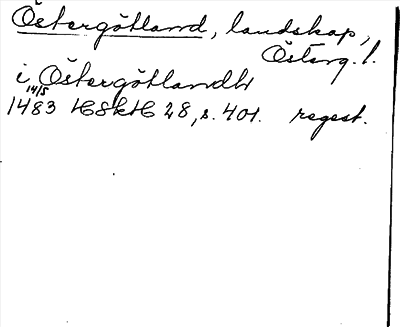 Östergötland, landskap,
Österg. l.
i Östergötlandh
14/5
1483 HSkH 28, s. 401. regest.